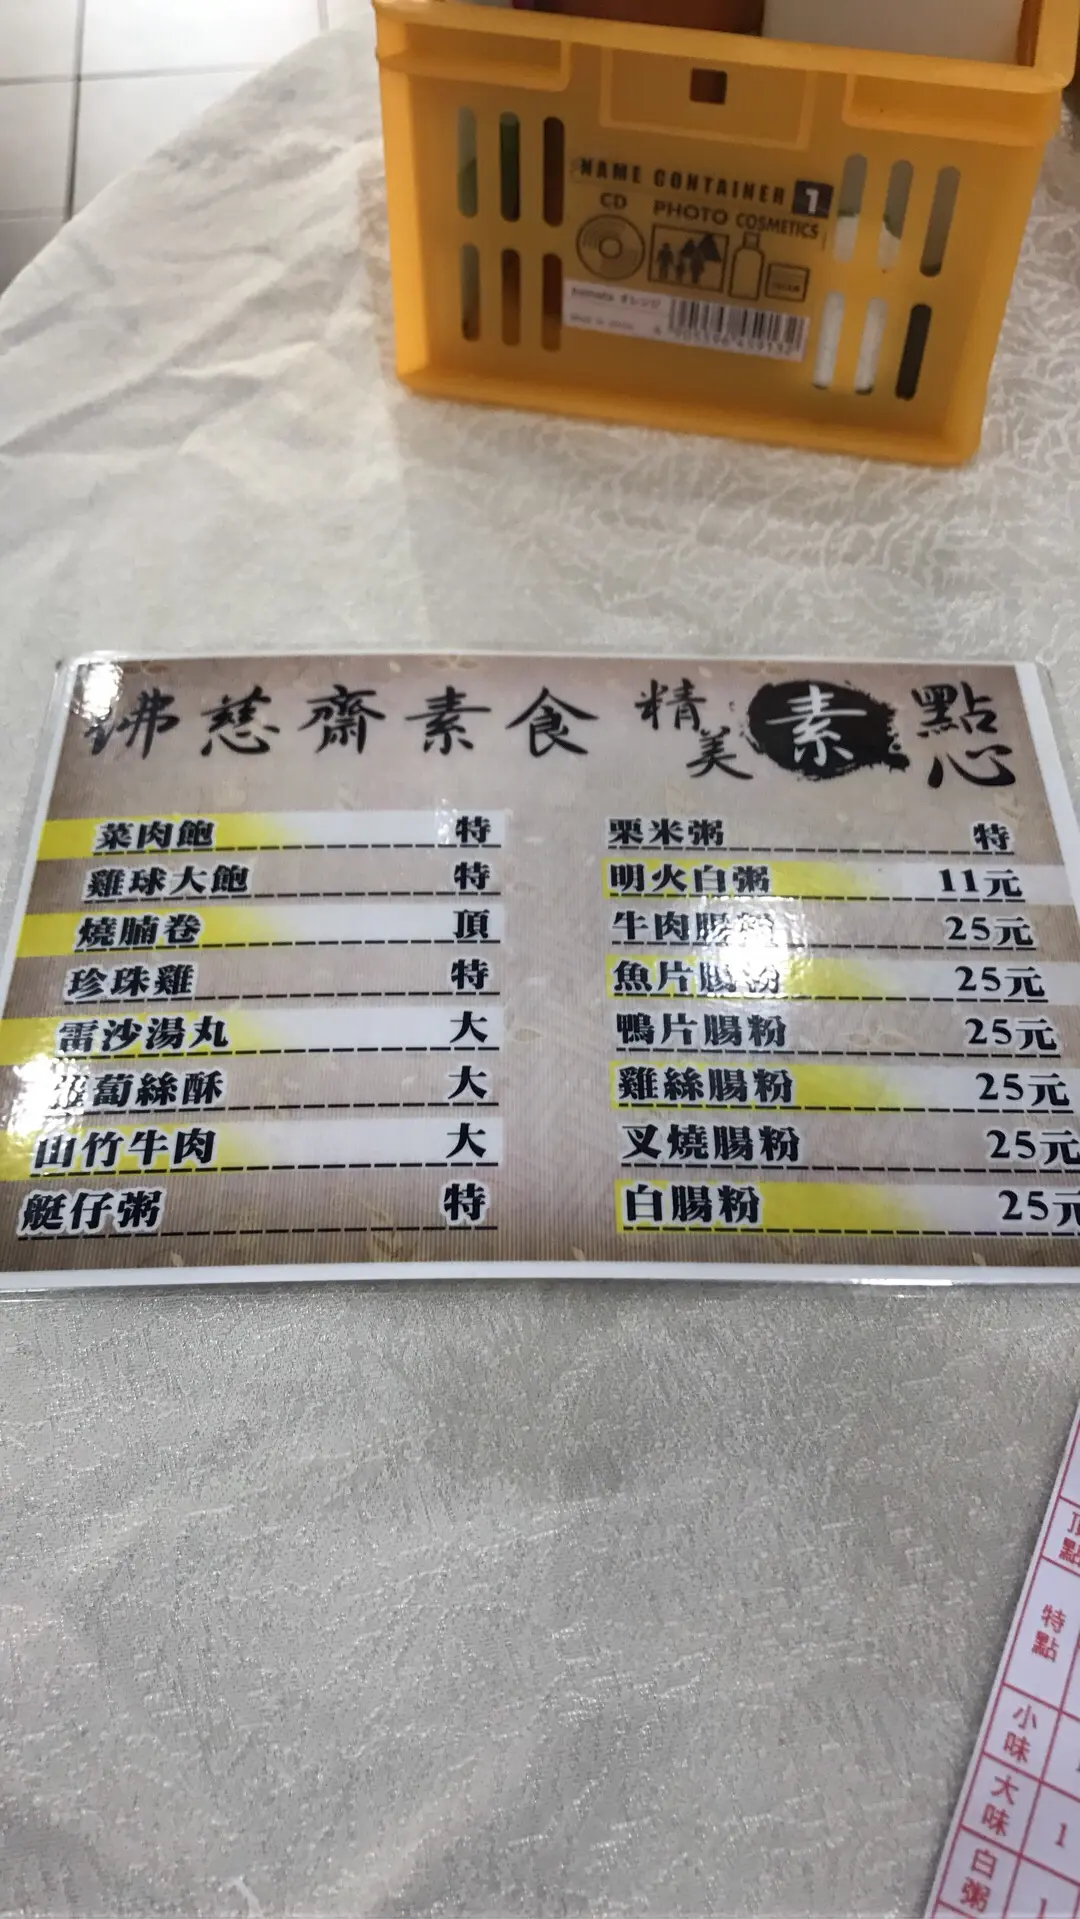 NAME CONTAINER 1
CD PHOTO COSMETICS
佛慈齋素食 精美素點心
菜肉飽 特
雞球大飽 特
燒腩卷 頂
珍珠雞 特
雷沙湯丸 大
蔔絲酥 大
山竹牛肉 大
艇仔粥 特
栗米粥 特
明火白粥 11元
牛肉腸粉 25元
魚片腸粉 25元
鴨片腸粉 25元
雞絲腸粉 25元
叉燒腸粉 25元
白腸粉 25元
特點
小味
大味 1
白粥 1